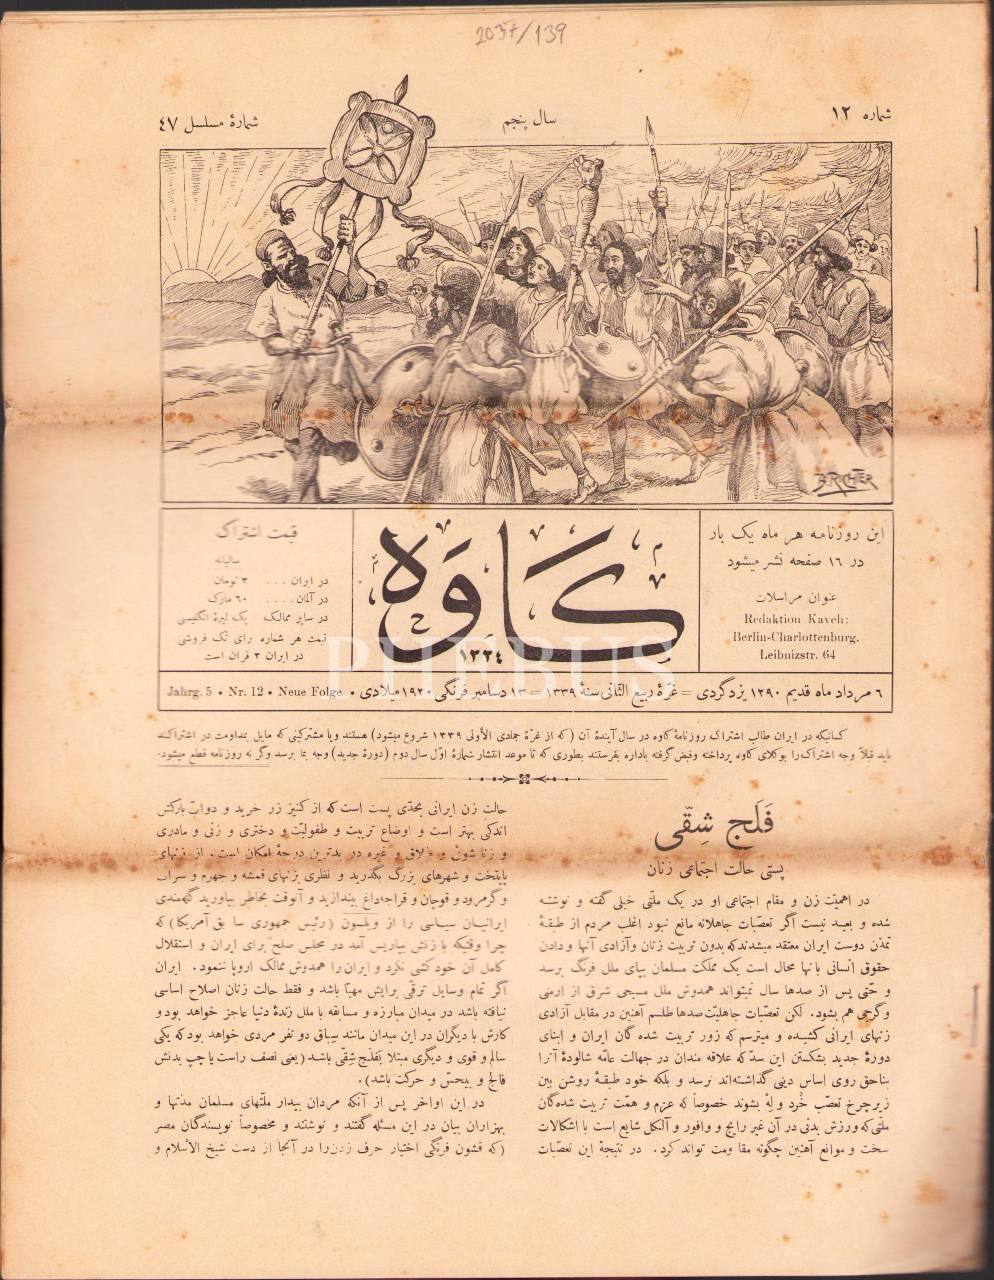 2037/139
شماره ۱۲
سال پنجم
شمارهٔ مسلسل ٤٧
این روزنامه هر ماه یک بار
در ۱٦ صفحه نشر میشود
عنوان مراسلات
Redaktion Kaveh:
Berlin-Charlottenburg.
Leibnizstr. 64
کاوه
۱۳۳٤
قیمت اشتراک
سالیانه
در ایران . . . ۳ تومان
در آلمان . . . . ٦۰ مارک
در سایر ممالک یک لیرهٔ انگلیسی
قیمت هر شماره برای تک فروشی
در ایران ۳ قران است
PHEBUS
٦ مرداد ماه قدیم ۱۲۹۰ یزدگردی = غرّهٔ ربیع الثانی سنهٔ ۱۳۳۹ = ۱۳ دسامبر فرنگی ۱۹۲۰ میلادی • Jahrg. 5 • Nr. 12 • Neue Folge
کسانیکه در ایران طالب اشتراک روزنامهٔ کاوه در سال آیندهٔ آن (که از غرّهٔ جمادی الأولی ۱۳۳۹ شروع میشود) هستند ویا مشترکینی که مایل بمداومت در اشتراکند
باید قبلاً وجه اشتراک را بوکلای کاوه پرداخته وقبض گرفته باداره بفرستند بطوری که تا موعد انتشار شمارهٔ اوّل سال دوم (دورهٔ جدید) وجه بما برسد وگر نه روزنامه قطع میشود.
فَلَج شِقّی
پستی حالت اجتماعی زنان
در اهمیّت زن و مقام اجتماعی او در یک ملّتی خیلی گفته و نوشته
شده و بعید نیست اگر تعصّبات جاهلانه مانع نبود اغلب مردم از طبقهٔ
تمدّن دوست ایران معتقد میشدند که بدون تربیت زنان وآزادی آنها و دادن
حقوق انسانی بآنها محال است یک مملکت مسلمان بپای ملل فرنگ برسد
و حتّی پس از صدها سال نمیتواند همدوش ملل مسیحی شرق از ارمنی
وگرجی هم بشود. لکن تعصّبات جاهلیّت صدها طلسم آهنین در مقابل آزادی
زنهای ایرانی کشیده و میترسم که زور تربیت شده گان ایران و ابنای
دورهٔ جدید بشکستن این سدّ که علاقه مندان در جهالت عامّه شالودهٔ آنرا
بناحق روی اساس دینی گذاشته‌اند نرسد و بلکه خود طبقهٔ روشن بین
زیر چرخ تعصّب خُرد و لِهْ بشوند خصوصاً که عزم و همّت تربیت شده‌گان
ملّتی که ورزش بدنی در آن غیر رایج و وافور و آلکل شایع است با اشکالات
سخت و موانع آهنین چگونه مقاومت تواند کرد. در نتیجهٔ این تعصّبات
حالت زن ایرانی بحدّی پست است که از کنیز زر خرید و دوابّ بارکش
اندکی بهتر است و اوضاع تربیت و طفولیّت و دختری و زنی و مادری
و زناشوئی و طلاق و غیره در بدترین درجهٔ امکان است. از زنهای
پایتخت و شهرهای بزرگ بگذرید و نظری بزنهای قمشه و جهرم و سراب
و گرمرود و قوچان و قراجه‌داغ بیندازید و آنوقت بخاطر بیاورید گله‌مندی
ایرانیان سیاسی را از ویلسون (رئیس جمهوری سابق آمریکا) که
چرا وقتیکه با زنش بپاریس آمد در مجلس صلح برای ایران و استقلال
کامل آن خود کشی نکرد و ایران را همدوش ممالک اروپا ننمود. ایران
اگر تمام وسایل ترقّی برایش مهیّا باشد و فقط حالت زنان اصلاح اساسی
نیافته باشد در میدان مبارزه و مسابقه با ملل زندهٔ دنیا عاجز خواهد بود و
کارش با دیگران در این میدان مانند سِباق دو نفر مردی خواهد بود که یکی
سالم و قوی و دیگری مبتلا بفلج شِقّی باشد (یعنی نصف راست یا چپ بدنش
فالج و بیحسّ و حرکت باشد).
در این اواخر پس از آنکه مردان بیدار ملّتهای مسلمان مدّتها و
بهزاران بیان در این مسئله گفتند و نوشتند و مخصوصاً نویسندگان مصر
(که قشون فرنگی اختیار حرف زدن را در آنجا از دست شیخ الأسلام و